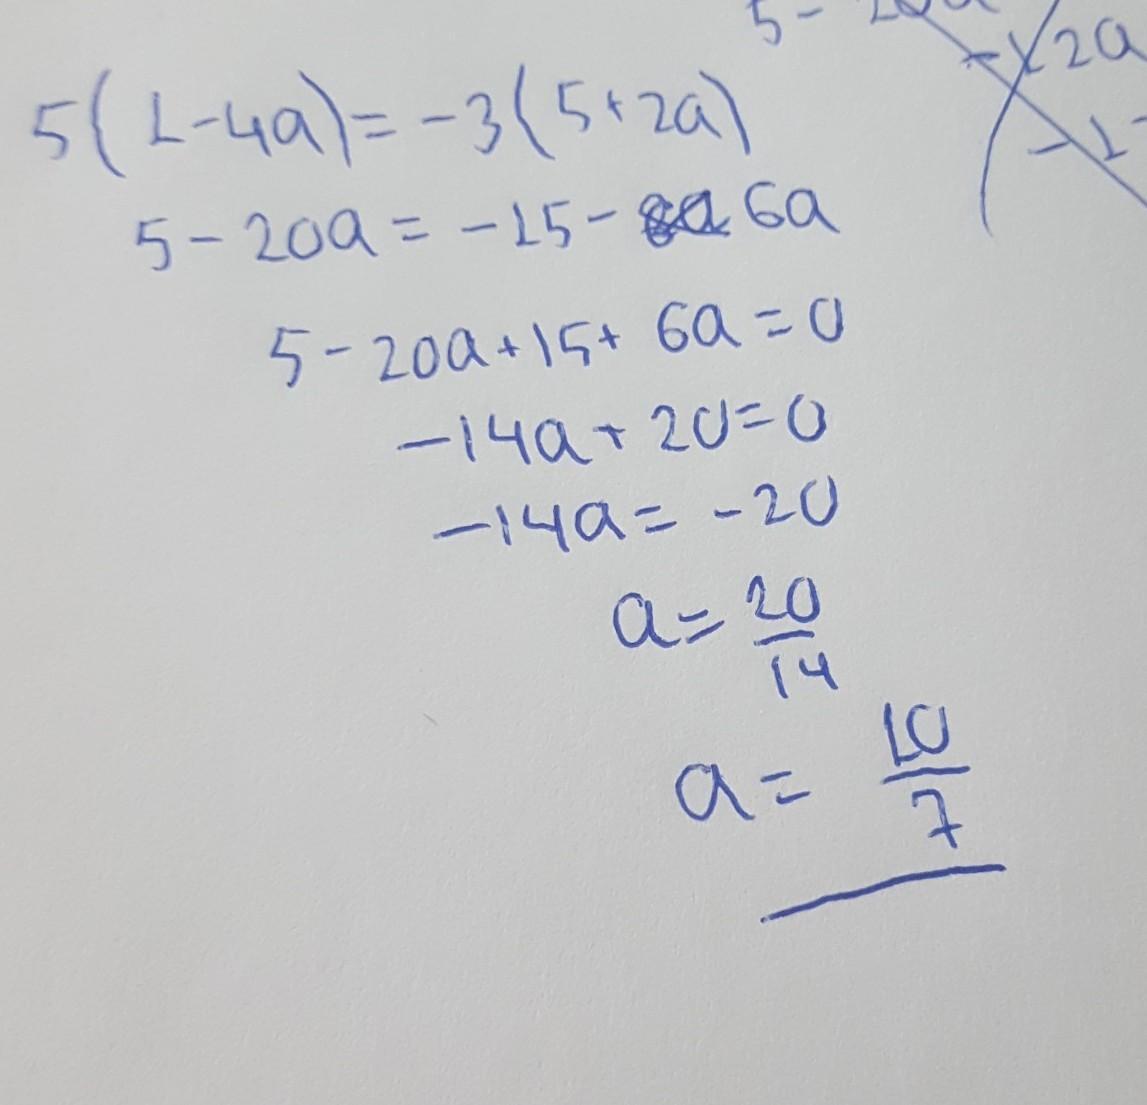 5(1-4a)=-3(5+2a)
5-20a=-15-6a
5-20a+15+6a=0
-14a+20=0
-14a=-20
a=20/14
a=10/7